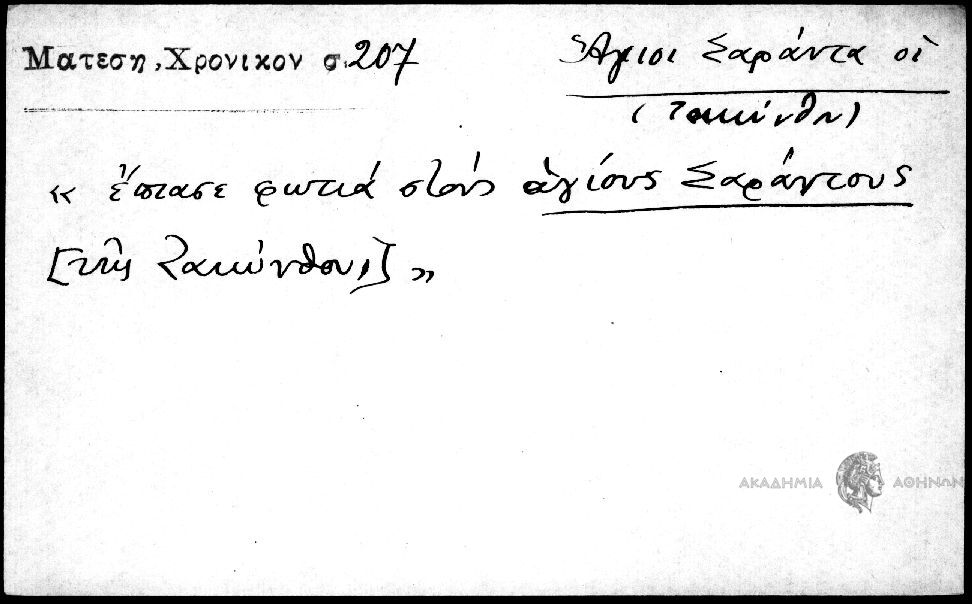 Ματεση, Χρονικον σ. 207
Ἅγιοι Σαράντα οἱ
(Ζακύνθῳ)
« ἔπιασε φωτιά στούς ἁγίους Σαράντους
[τῆς Ζακύνθου,] »
ΑΚΑΔΗΜΙΑ ΑΘΗΝΩΝ